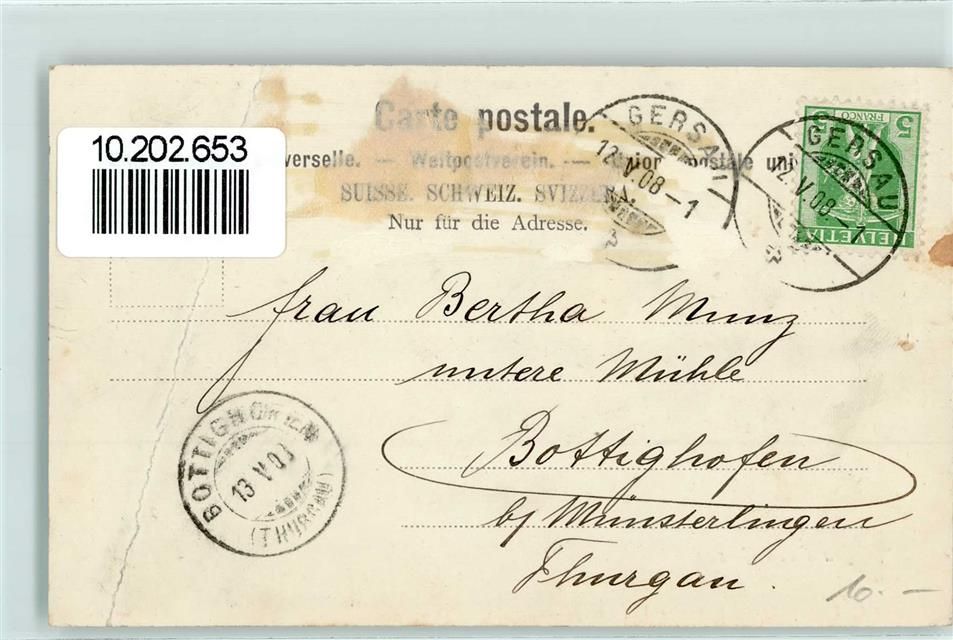 Carte postale.
10.202.653
verselle. — Weltpostverein. — Unior postale uni
SUISSE. SCHWEIZ. SVIZZERA.
Nur für die Adresse.
GERSAU
12.V.08 –1
GERSAU
12.V.08 –1
5
FRANCO
HELVETIA
Frau Bertha Munz
untere Mühle
Bottighofen
b/ Münsterlingen
Thurgau.
BOTTIGHOFEN
13 V 08
(THURGAU)
10.–